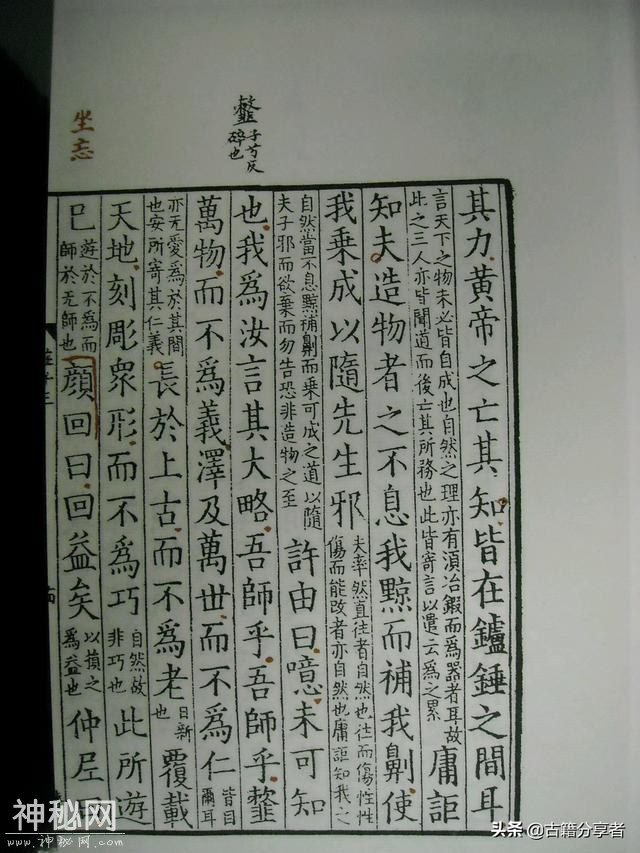 𩐋子兮反
碎也
坐忘
其力黄帝之亡其知皆在鑪錘之間耳
言天下之物未必皆自成也自然之理亦有湏冶鍜而爲器者耳故
此之三人亦皆聞道而後亡其所務也此皆寄言以遣云爲之累
庸詎
知夫造物者之不息我黥而補我劓使
我乗成以隨先生邪
夫率然直往者自然也往而傷性性
傷而能改者亦自然也庸詎知我之
自然當不息黥補劓而乗可成之道以隨
夫子邪而欲棄而勿告恐非造物之至
許由曰噫未可知
也我爲汝言其大略吾師乎吾師乎𩐋
萬物而不爲義澤及萬世而不爲仁
皆自
爾耳
亦无愛爲於其間
也安所寄其仁義
長於上古而不爲老
日新
也
覆載
天地刻彫衆形而不爲巧
自然故
非巧也
此所遊
已
遊於不爲而
師於无師也
顔回曰回益矣
以損之
爲益也
仲尼曰
神秘网
www.神秘网.com
头条 @古籍分享者